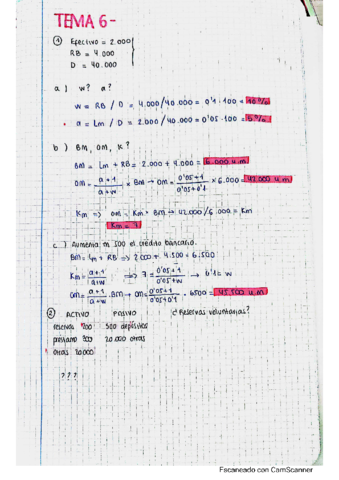 TEMA 6-
① Efectivo = 2.000
RB = 4.000
D = 40.000
a ) w? a?
w = RB / D = 4.000/40.000 = 0'1 · 100 = 10%
• a = Lm / D = 2.000 / 40.000 = 0'05 · 100 = 5%
b ) BM, OM, K?
BM = Lm + RB = 2.000 + 4.000 = 6.000 u.m
OM = a+1 / a+w × BM → OM = 0'05+1 / 0'05+0'1 × 6.000 = 42.000 u.m
Km => OM = Km · BM → 42.000/6.000 = Km
Km = 7
c ) Aumenta m 500 el crédito bancario.
BM = Lm + RB => 2000 + 4.500 = 6.500
Km = a+1 / a+w => 7 = 0'05+1 / 0'05+w → 0'1 = w
OM = a+1 / a+w · BM → OM = 0'05+1 / 0'05+0'1 · 6500 = 45.500 u.m
② ACTIVO PASIVO ¿ Reservas voluntarias?
reservas 200 500 depósitos
préstamo 300 20.000 otras
otras 20.000
? ? ?
Escaneado con CamScanner